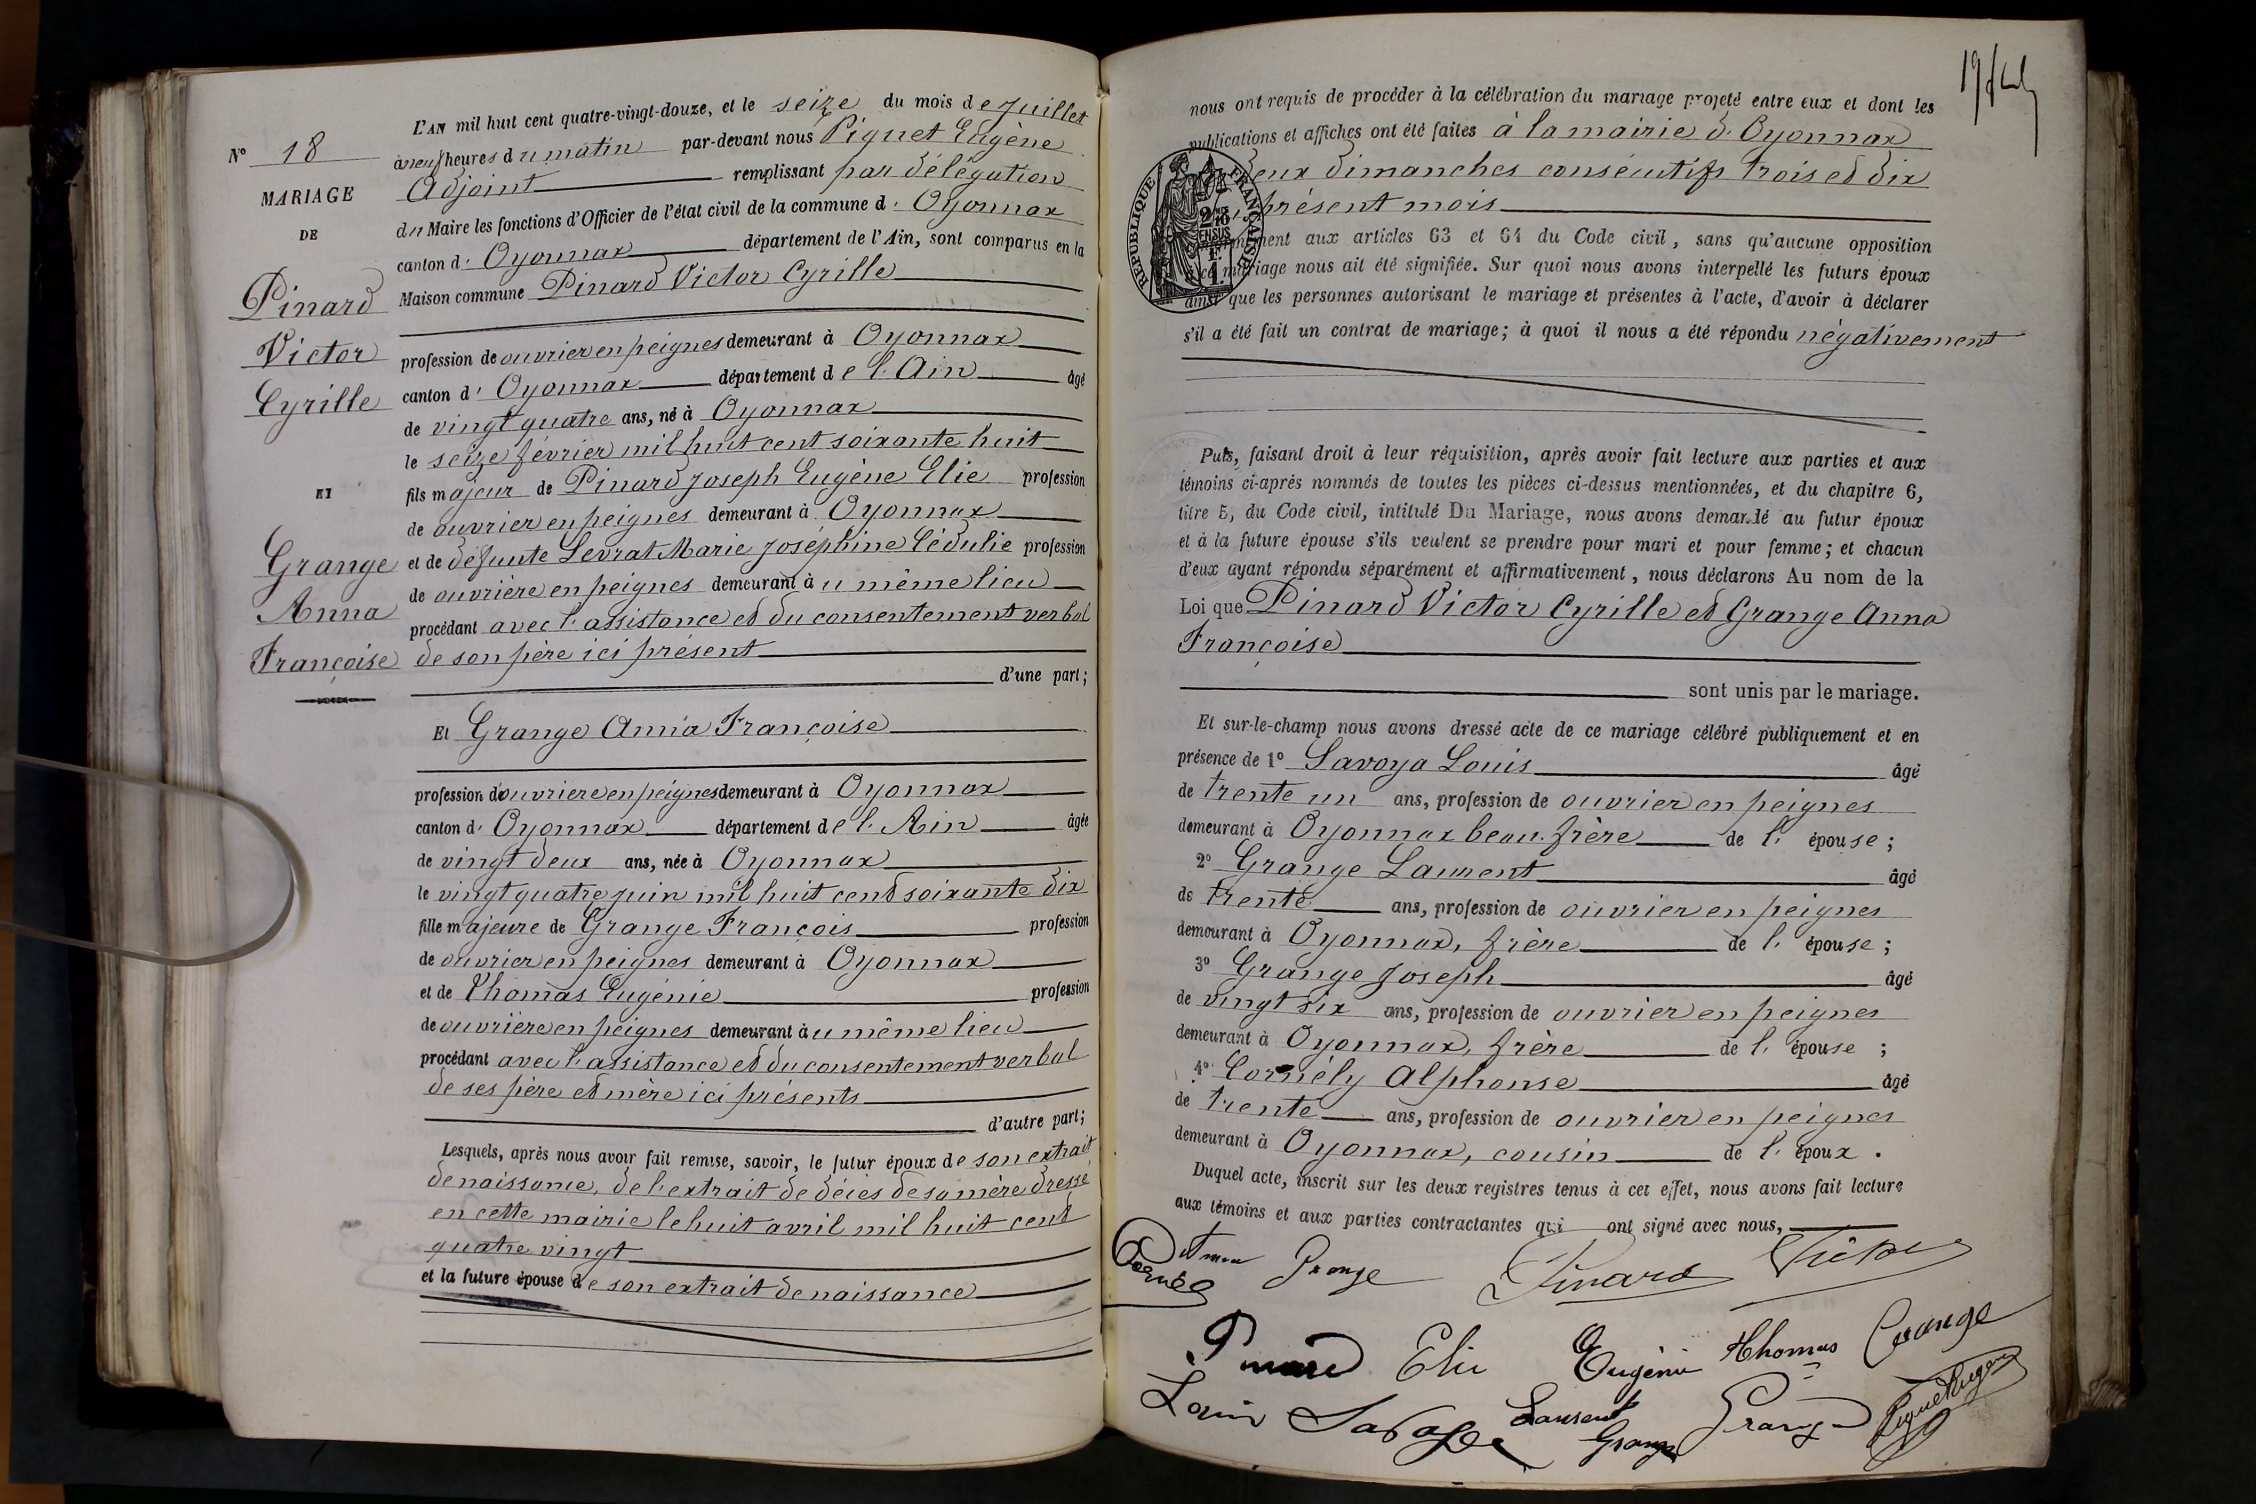 N° 18
MARIAGE
DE
Pinard
Victor
Cyrille
ET
Grange
Anna
Françoise
L'AN mil huit cent quatre-vingt-douze, et le seize du mois de juillet
à neuf heures du matin par-devant nous Piquet Eugène
Adjoint remplissant par délégation
du Maire les fonctions d'Officier de l'état civil de la commune d' Oyonnax
canton d' Oyonnax département de l'Ain, sont comparus en la
Maison commune Pinard Victor Cyrille
profession de ouvrier en peignes demeurant à Oyonnax
canton d' Oyonnax département de l'Ain âgé
de vingt quatre ans, né à Oyonnax
le seize février mil huit cent soixante huit
fils majeur de Pinard Joseph Eugène Elie profession
de ouvrier en peignes demeurant à Oyonnax
et de défunte Levrat Marie Joséphine Cédulie profession
de ouvrière en peignes demeurant à u même lieu
procédant avec l'assistance et du consentement verbal
de son père ici présent
d'une part;
Et Grange Anna Françoise
profession d'ouvrière en peignes demeurant à Oyonnax
canton d' Oyonnax département de l'Ain âgée
de vingt deux ans, née à Oyonnax
le vingt quatre juin mil huit cent soixante dix
fille majeure de Grange François profession
de ouvrier en peignes demeurant à Oyonnax
et de Thomas Eugénie profession
de ouvrière en peignes demeurant à u même lieu
procédant avec l'assistance et du consentement verbal
de ses père et mère ici présents
d'autre part;
Lesquels, après nous avoir fait remise, savoir, le futur époux de son extrait
de naissance, de l'extrait de décès de sa mère dressé
en cette mairie le huit avril mil huit cent
quatre vingt
et la future épouse de son extrait de naissance
nous ont requis de procéder à la célébration du mariage projeté entre eux et dont les
publications et affiches ont été faites à la mairie d'Oyonnax
deux dimanches consécutifs trois et dix
présent mois
conformément aux articles 63 et 64 du Code civil, sans qu'aucune opposition
à ce mariage nous ait été signifiée. Sur quoi nous avons interpellé les futurs époux
ainsi que les personnes autorisant le mariage et présentes à l'acte, d'avoir à déclarer
s'il a été fait un contrat de mariage; à quoi il nous a été répondu négativement
RÉPUBLIQUE FRANÇAISE
Puis, faisant droit à leur réquisition, après avoir fait lecture aux parties et aux
témoins ci-après nommés de toutes les pièces ci-dessus mentionnées, et du chapitre 6,
titre 5, du Code civil, intitulé Du Mariage, nous avons demandé au futur époux
et à la future épouse s'ils veulent se prendre pour mari et pour femme; et chacun
d'eux ayant répondu séparément et affirmativement, nous déclarons Au nom de la
Loi que Pinard Victor Cyrille et Grange Anna
Françoise
sont unis par le mariage.
Et sur-le-champ nous avons dressé acte de ce mariage célébré publiquement et en
présence de 1° Savoya Louis âgé
de trente un ans, profession de ouvrier en peignes
demeurant à Oyonnax beau-frère de l' épouse;
2° Grange Laurent âgé
de trente ans, profession de ouvrier en peignes
demeurant à Oyonnax, frère de l' épouse;
3° Grange Joseph âgé
de vingt six ans, profession de ouvrier en peignes
demeurant à Oyonnax, frère de l' épouse;
4° Cornély Alphonse âgé
de trente ans, profession de ouvrier en peignes
demeurant à Oyonnax, cousin de l' époux.
Duquel acte, inscrit sur les deux registres tenus à cet effet, nous avons fait lecture
aux témoins et aux parties contractantes qui ont signé avec nous,
Grange Pinard Victor
Pinard Elie Eugénie Thomas Grange
Louis Savoye Laurent Grange Grange Piquet Eugène